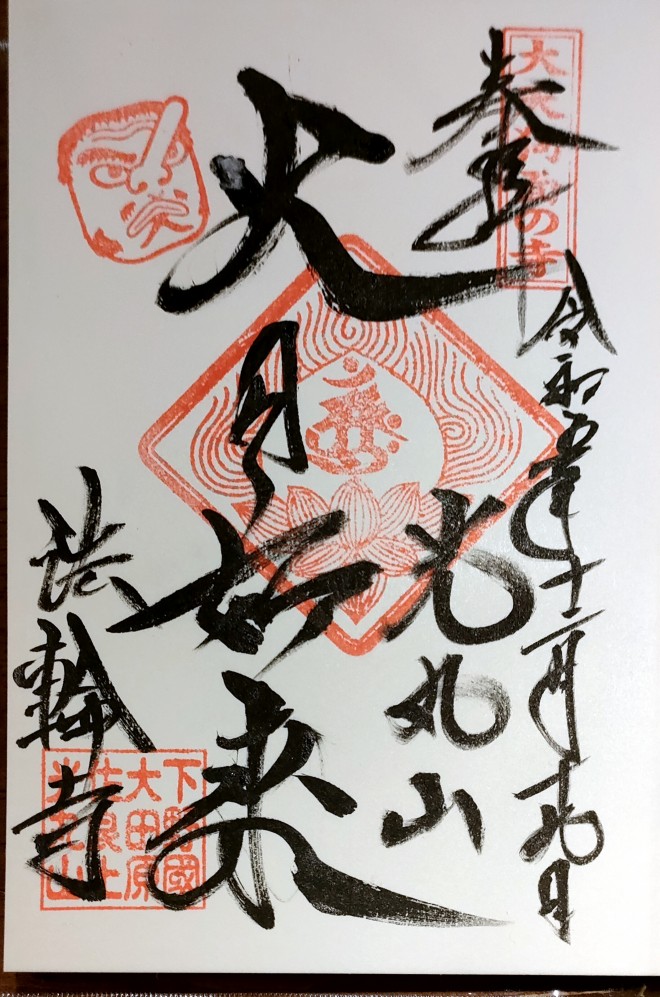 大天狗面の寺
奉拝
令和五年十一月十九日
光丸山
大日如来
法輪寺
下野國
大田原
佐良土
光丸山